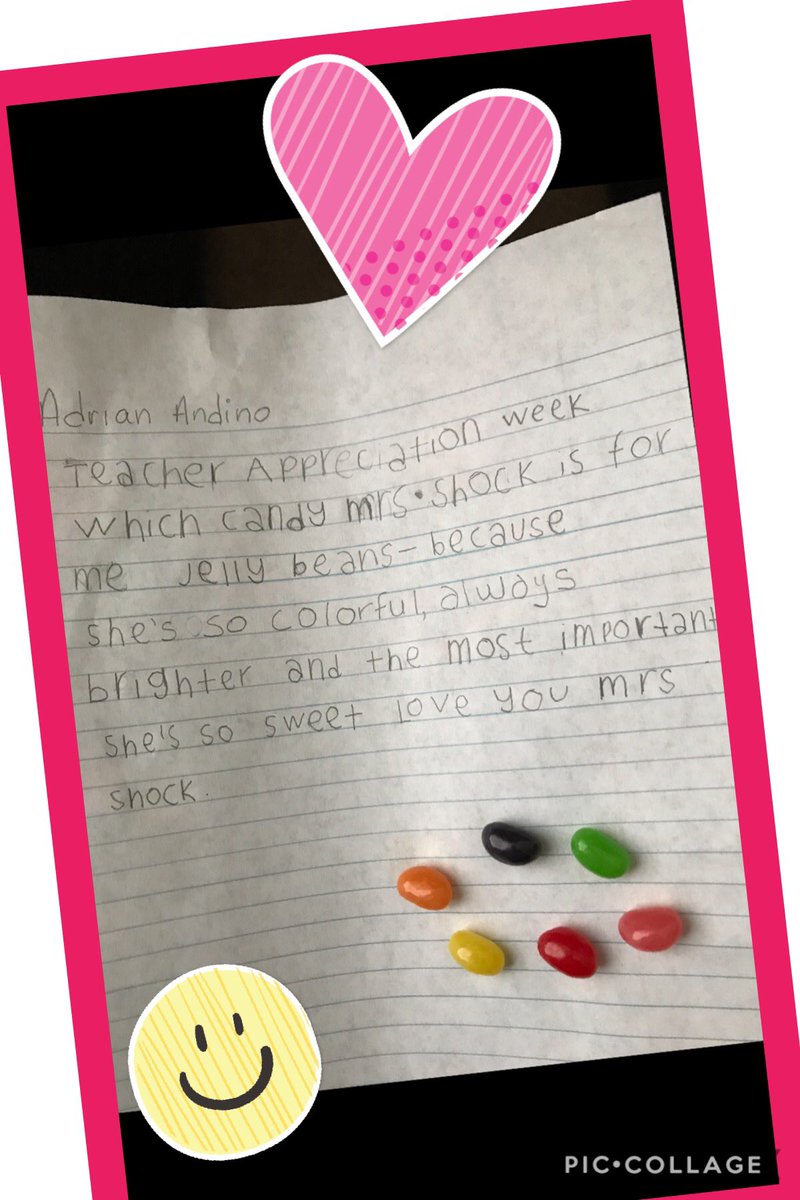 Adrian Andino
Teacher Appreciation week
which candy mrs. shock is for
me Jelly beans- because
she's so colorful, always
brighter and the most important
she's so sweet love you mrs
shock.
PIC•COLLAGE